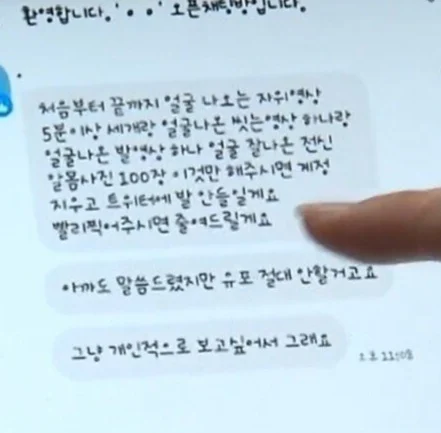 환영합니다. ' • • ' 오픈채팅방입니다.
처음부터 끝까지 얼굴 나오는 자위영상
5분이상 세개랑 얼굴나온 씻는영상 하나랑
얼굴나온 발영상 하나 얼굴 잘나온 전신
알몸사진 100장 이것만 해주시면 계정
지우고 트위터에 발 안들일게요
빨리찍어주시면 줄여드릴게요
아까도 말씀드렸지만 유포 절대 안할거고요
그냥 개인적으로 보고싶어서 그래요
오후 11:08